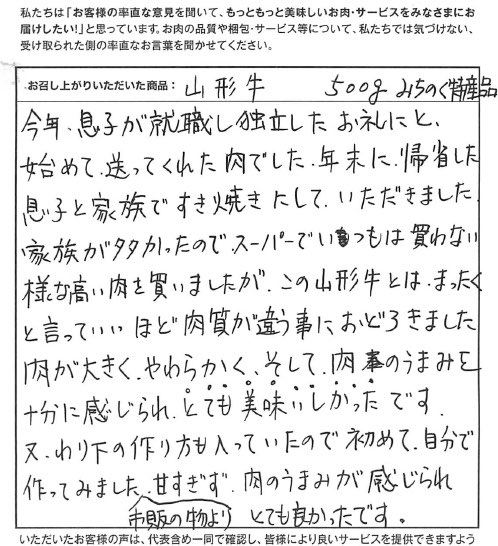 私たちは「お客様の率直な意見を聞いて、もっともっと美味しいお肉・サービスをみなさまにお
届けしたい!」と思っています。お肉の品質や梱包・サービス等について、私たちでは気づけない、
受け取られた側の率直なお言葉を聞かせてください。
お召し上がりいただいた商品: 山形牛 500g みちのく特産品
今年、息子が就職し独立したお礼にと、
始めて、送ってくれた肉でした。年末に、帰省した
息子と家族ですき焼きにして、いただきました。
家族が多かったので、スーパーでいつもは買わない
様な高い肉を買いましたが、この山形牛とは、まったく
と言っていいほど肉質が違う事におどろきました
肉が大きく、やわらかく、そして、肉のうまみを
十分に感じられ、とても美味しかったです。
又、わり下の作り方も入っていたので初めて、自分で
作ってみました。甘すぎず、肉のうまみが感じられ
市販の物より とても良かったです。
いただいたお客様の声は、代表含め一同で確認し、皆様により良いサービスを提供できますよう